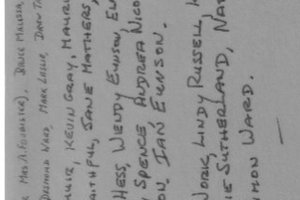 MRS A. FOUBISTER). BRUCE MALLASA,
DESMOND WARD, MARK LESLIE, DREW
MUIR, KEVIN GRAY, MAURI
AITHFUL, JANE MATHERS,
HESS, WENDY EUNSON, EU
SPENCE, ANDREA NICO
ON. IAN EUNSON.
WORK, LINDY RUSSELL,
IE SUTHERLAND, NA
IMON WARD.